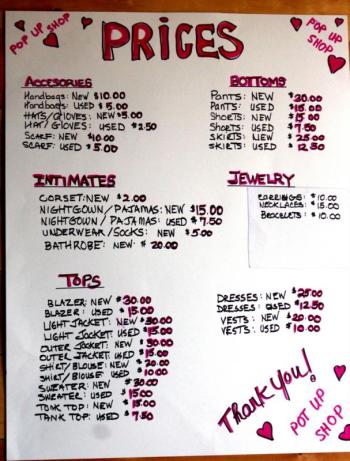 POP UP SHOP
PRICES
POP UP
SHOP
ACCESORIES
Handbags: NEW $10.00
Handbags: USED $5.00
HATS/GLOVES: NEW $5.00
HAT/GLOVES: USED $2.50
SCARF: NEW $10.00
SCARF: USED $5.00
BOTTOMS
PANTS: NEW $30.00
PANTS: USED $15.00
Shorts: NEW $15.00
Shorts: USED $7.50
SKIRTS: NEW $25.00
SKIRTS: USED $12.50
INTIMATES
CORSET: NEW $2.00
NIGHTGOWN/PAJAMAS: NEW $15.00
NIGHTGOWN/PAJAMAS: USED $7.50
UNDERWEAR/SOCKS: NEW $5.00
BATHROBE: NEW: $20.00
JEWELRY
EARRINGS: $10.00
NECKLACES: $15.00
BRACELETS: $10.00
TOPS
BLAZER: NEW $30.00
BLAZER: USED $15.00
LIGHT JACKET: NEW $30.00
LIGHT JACKET: USED $15.00
OUTER JACKET: NEW $30.00
OUTER JACKET: USED $15.00
SHIRT/BLOUSE: NEW $20.00
SHIRT/BLOUSE: USED $10.00
SWEATER: NEW $30.00
SWEATER: USED $15.00
TANK TOP: NEW $15.00
TANK TOP: USED $7.50
DRESSES: NEW $25.00
DRESSES: USED $12.50
VESTS: NEW $20.00
VESTS: USED $10.00
Thank You!
POT UP
SHOP